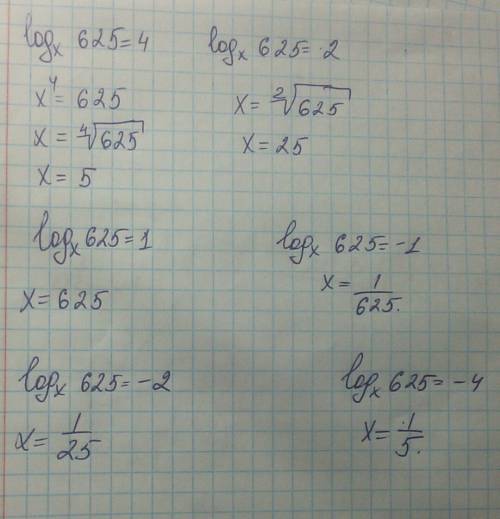 logₓ 625 = 4
x⁴ = 625
x = ⁴√625
x = 5
logₓ 625 = 2
x = ²√625
x = 25
logₓ 625 = 1
x = 625
logₓ 625 = -1
x = 1/625.
logₓ 625 = -2
x = 1/25
logₓ 625 = -4
x = 1/5.